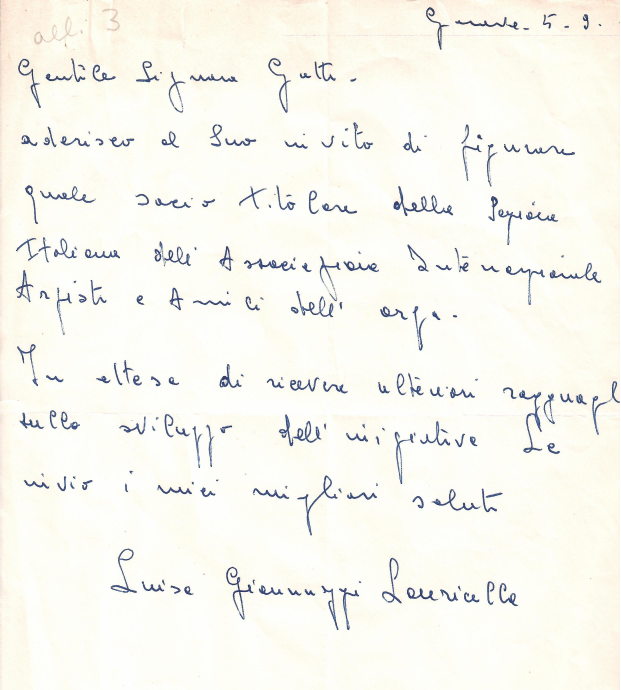 all. 3
Genova - 5 - 9.
Gentile Signora Gatti -
aderisco al Suo invito di figurare
quale socio titolare della Sezione
Italiana dell' Associazione Internazionale
Arpisti e Amici dell' arpa.
In attesa di ricevere ulteriori ragguagl
sullo sviluppo dell' iniziativa Le
invio i miei migliori saluti
Luisa Giannuzzi Lauricella